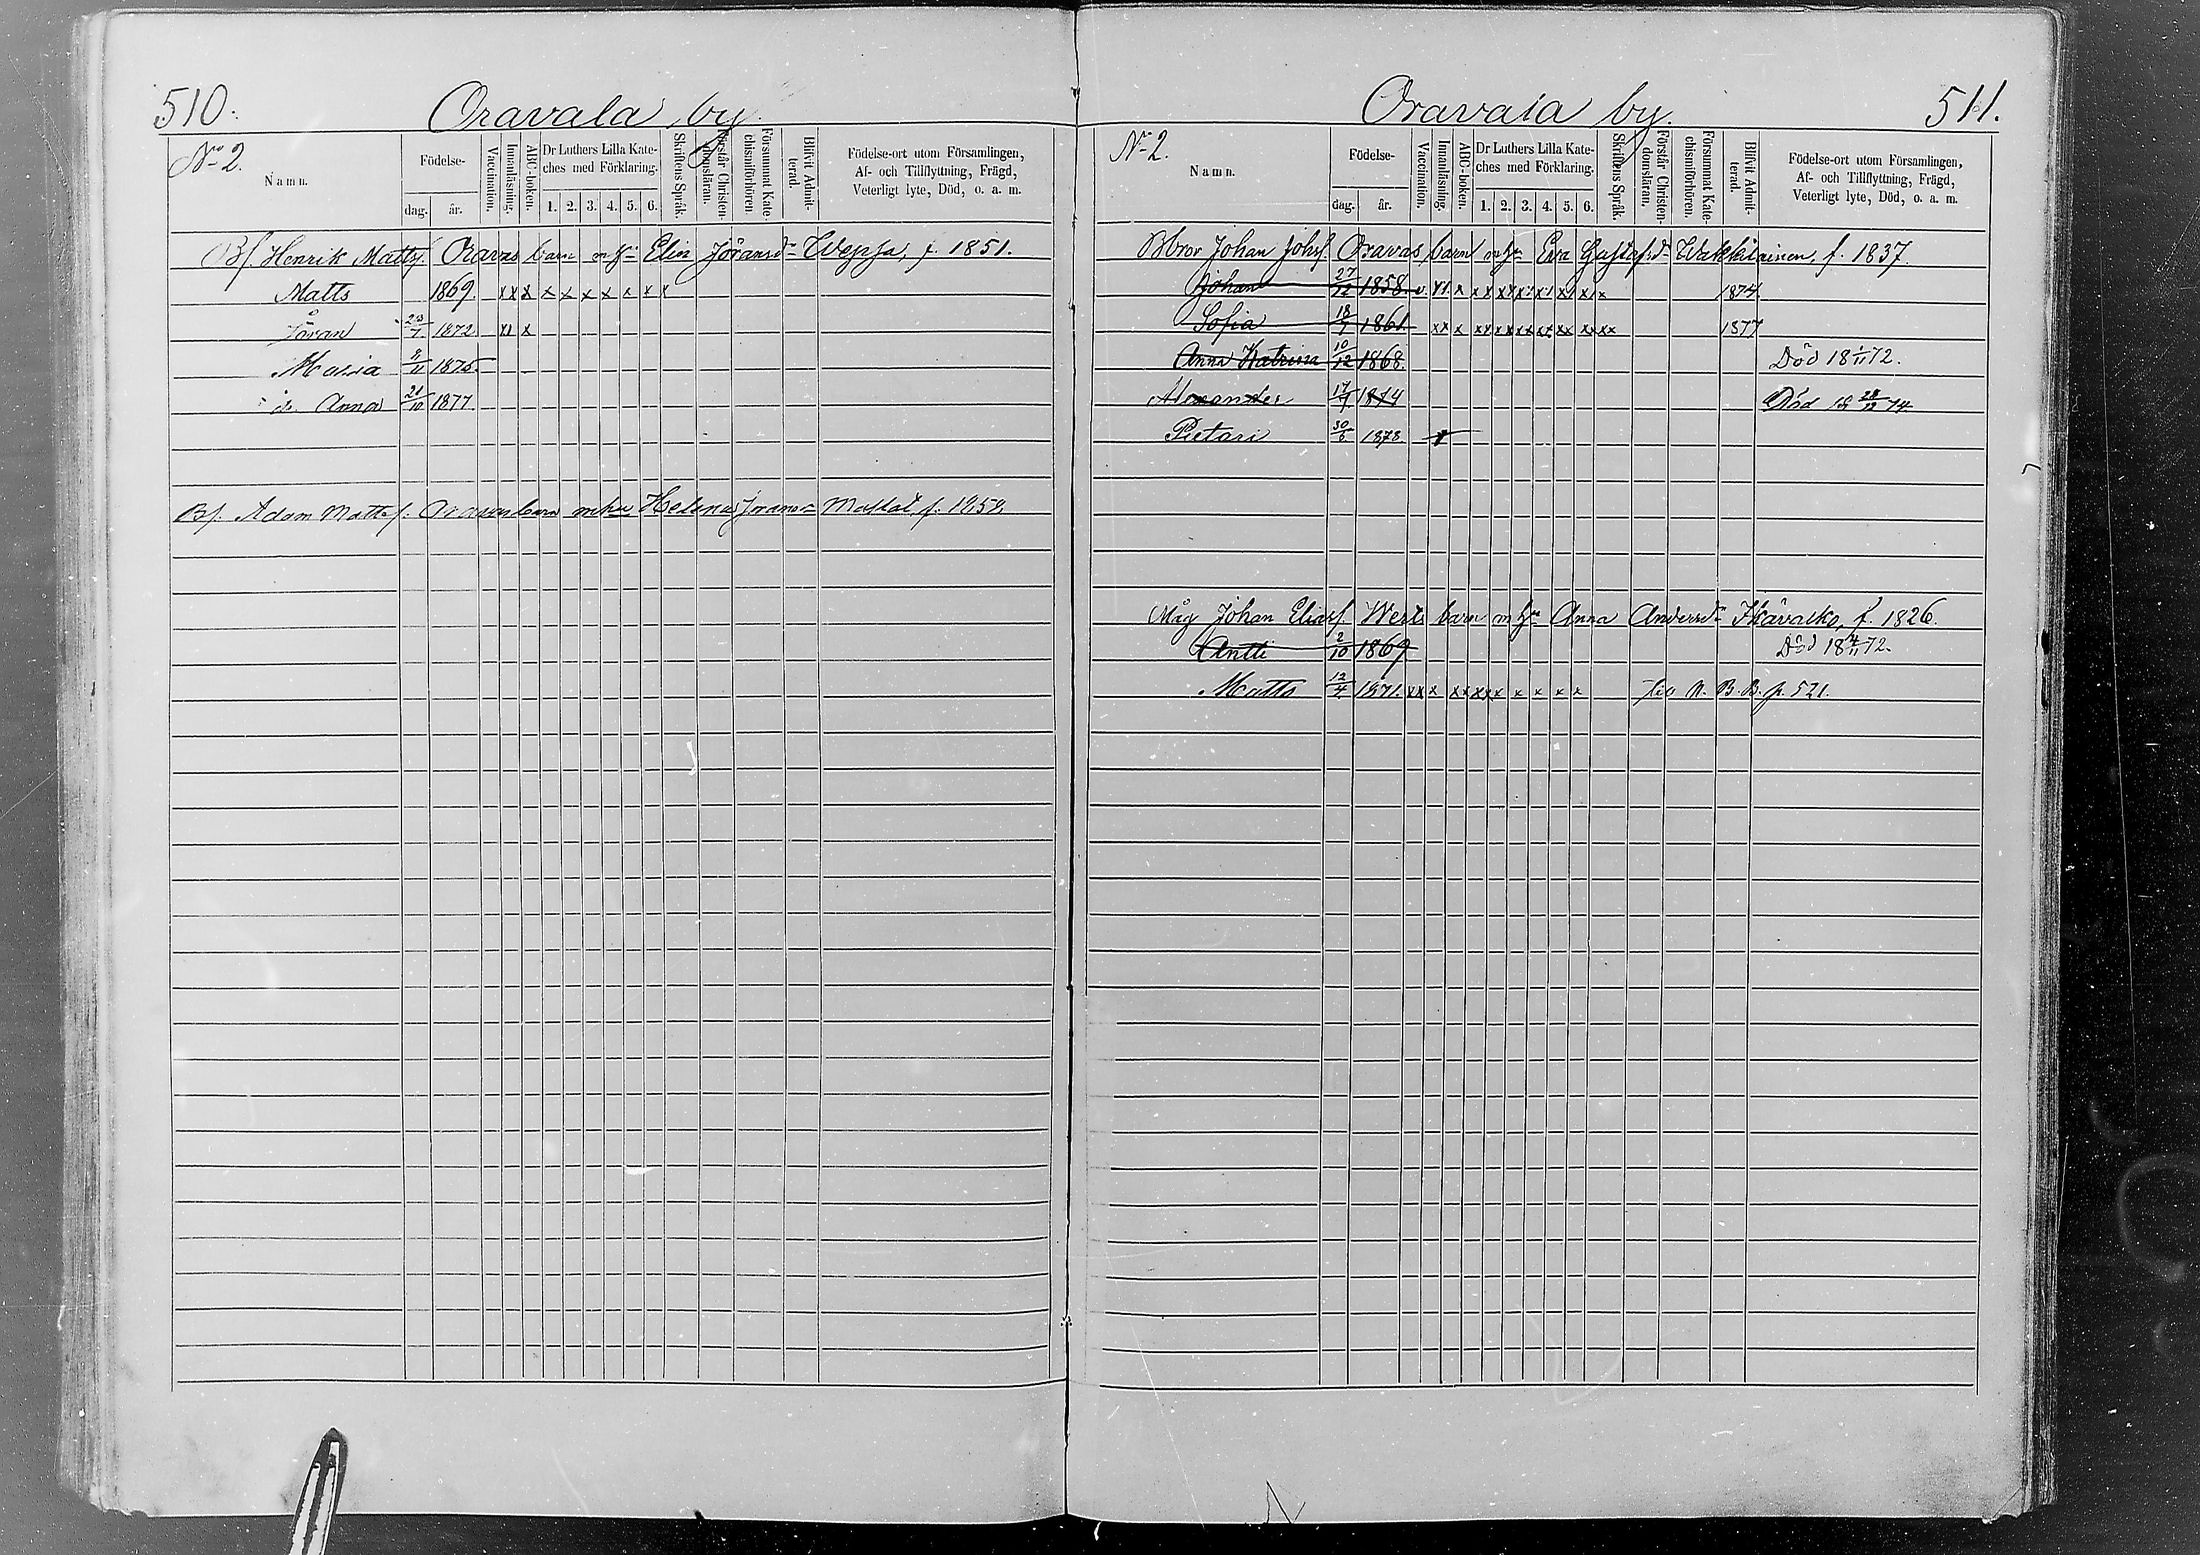 510.
Oravala by.
No 2.
Namn.
Födelse-
dag.
år.
Vaccination.
Innanläsning.
ABC-boken.
Dr Luthers Lilla Kate-
ches med Förklaring.
1. 2. 3. 4. 5. 6.
Skriftens Språk.
Förstår Christen-
domsläran.
Försummat Kate-
chismiförhören.
Blifvit Admit-
terad.
Födelse-ort utom Församlingen,
Af- och Tillflyttning, Frägd,
Veterligt lyte, Död, o. a. m.
Bf. Henrik Mattsf. Oravas barn m hu Elin Jöransdr Wepsä, f. 1851.
Matts 1869. x x x x x x x x x x
Jöran 23/7 1872 x x x
Maria 1875
d. Anna 21/10 1877
Bf. Adam Mattsf. Oravas barn m hu Helena f. 1858
511.
Oravala by.
No 2.
Namn.
Födelse-
dag.
år.
Vaccination.
Innanläsning.
ABC-boken.
Dr Luthers Lilla Kate-
ches med Förklaring.
1. 2. 3. 4. 5. 6.
Skriftens Språk.
Förstår Christen-
domsläran.
Försummat Kate-
chismiförhören.
Blifvit Admit-
terad.
Födelse-ort utom Församlingen,
Af- och Tillflyttning, Frägd,
Veterligt lyte, Död, o. a. m.
Bbror Johan Johsf. Oravas barn m hu Eva Gustafsdr Wakkilainen, f. 1837.
Johan 27/12 1858 v. 1874
Sofia 18/7 1861 1877
Anna Katrina 10/12 1868. Död 18 1/11 72.
Alexander 17/7 1874 Död 18 28/12 74
Pietari 30/6 1878
Måg Johan Eliasf. barn m hu Anna Andersdr Ikävalko, f. 1826.
Antti 2/10 1869 Död 18 4/11 72.
Matts 12/4 1871. N. B. B. p. 521.